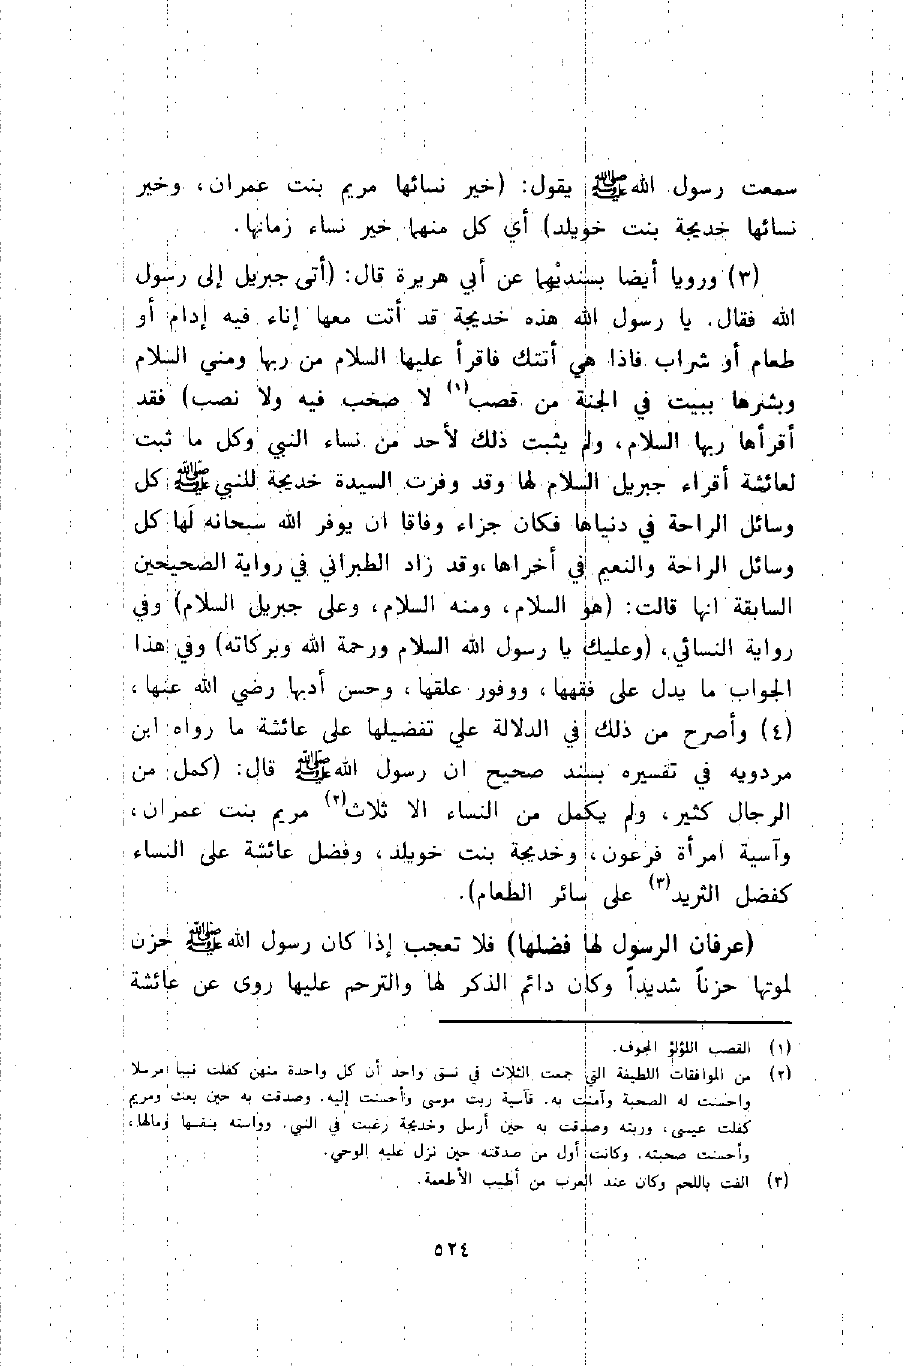 سمعت رسول الله ﷺ يقول: (خير نسائها مريم بنت عمران، وخير
نسائها خديجة بنت خويلد) أي كل منهما خير نساء زمانها.
(٣) ورويا أيضا بسنديْهما عن أبي هريرة قال: (أتى جبريل إلى رسول
الله فقال. يا رسول الله هذه خديجة قد أتت معها إناء فيه إدام أو
طعام أو شراب فاذا هي أتتك فاقرأ عليها السلام من ربها ومني السلام
وبشرها ببيت في الجنة من قصب(١) لا صخب فيه ولا نصب) فقد
أقرأها ربها السلام، ولم يثبت ذلك لأحد من نساء النبي وكل ما ثبت
لعائشة أقراء جبريل السلام لها وقد وفرت السيدة خديجة للنبي ﷺ كل
وسائل الراحة في دنياها فكان جزاء وفاقا ان يوفر الله سبحانه لَها كل
وسائل الراحة والنعيم في أخراها، وقد زاد الطبراني في رواية الصحيحين
السابقة انها قالت: (هو السلام، ومنه السلام، وعلى جبريل السلام) وفي
رواية النسائي، (وعليك يا رسول الله السلام ورحمة الله وبركاته) وفي هذا
الجواب ما يدل على فقهها، ووفور علقها، وحسن أدبها رضي الله عنها،
(٤) وأصرح من ذلك في الدلالة علي تفضيلها على عائشة ما رواه ابن
مردويه في تفسيره بسند صحيح ان رسول الله ﷺ قال: (كمل من
الرجال كثير، ولم يكمل من النساء الا ثلاث(٢) مريم بنت عمران،
وآسية امرأة فرعون، وخديجة بنت خويلد، وفضل عائشة على النساء
كفضل الثريد(٣) على سائر الطعام).
(عرفان الرسول لها فضلها) فلا تعجب إذا كان رسول الله ﷺ حزن
لموتها حزناً شديداً وكان دائم الذكر لها والترحم عليها روى عن عائشة
(١) القصب اللؤلؤ المجوف.
(٢) من الموافقات اللطيفة التي جمعت الثلاث في نسق واحد أن كل واحدة منهن كفلت نبيا مرسلا
واحسنت له الصحبة وآمنت به. فآسية ربت موسى وأحسنت إليه. وصدقت به حين بعث ومريم
كفلت عيسى، وربته وصدقت به حين أرسل وخديجة رغبت في النبي. وواسته بنفسها ومالها،
وأحسنت صحبته. وكانت أول من صدقته حين نزل عليه الوحي.
(٣) الفت باللحم وكان عند العرب من أطيب الأطعمة.
٥٢٤